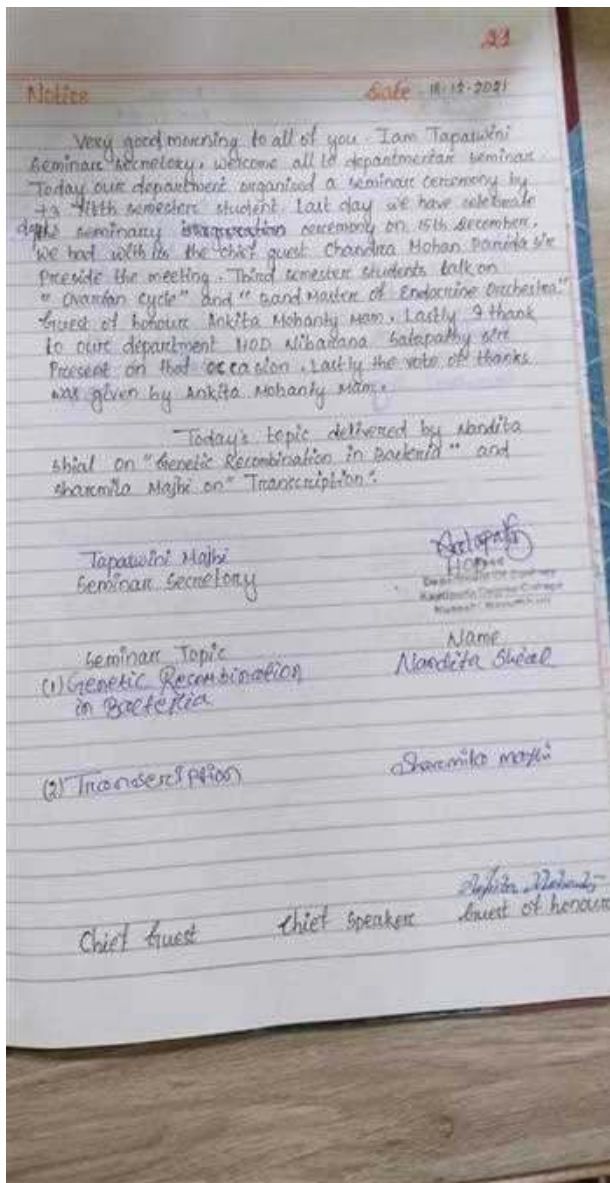 21
Notice Date 18.12.2021
Very good morning to all of you. I am Tapaswini
Seminar Secretory, welcome all to departmentar seminar
Today our department organised a seminar ceremony by
+3 fifth semester student. Last day we have celebrate
seminary ceremony on 15th december.
We had with us the chief guest Chandra Mohan Parida sir
Preside the meeting. Third semester students talk on
"Ovarian cycle" and "Band Master of Endocrine Orchestra"
Guest of honour Ankita Mohanty Mam. Lastly I thank
to our department HOD Nibarana Satapathy sir
Present on that occasion. Lastly the vote of thanks
was given by Ankita Mohanty Mam.
Today's topic delivered by Nandita
shial on "Genetic Recombination in Bacteria" and
sharmila Majhi on "Transcription".
Tapaswini Majhi
Seminar Secretory
Seminar Topic Name
(1) Genetic Recombination Nandita Shial
in Bacteria
(2) Transcription Sharmila majhi
Chief Guest Chief Speaker Guest of honour